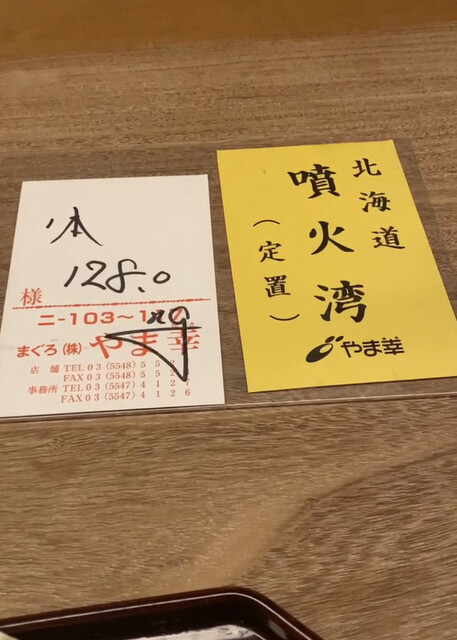 128.0
様
ニ-103〜1
まぐろ(株) やま幸
店 舗 TEL 03 (5548) 5 5
FAX 03 (5548) 5 5
事務所 TEL 03 (5547) 4 1 2
FAX 03 (5547) 4 1 2 6
北海道
噴火湾
(定置)
やま幸